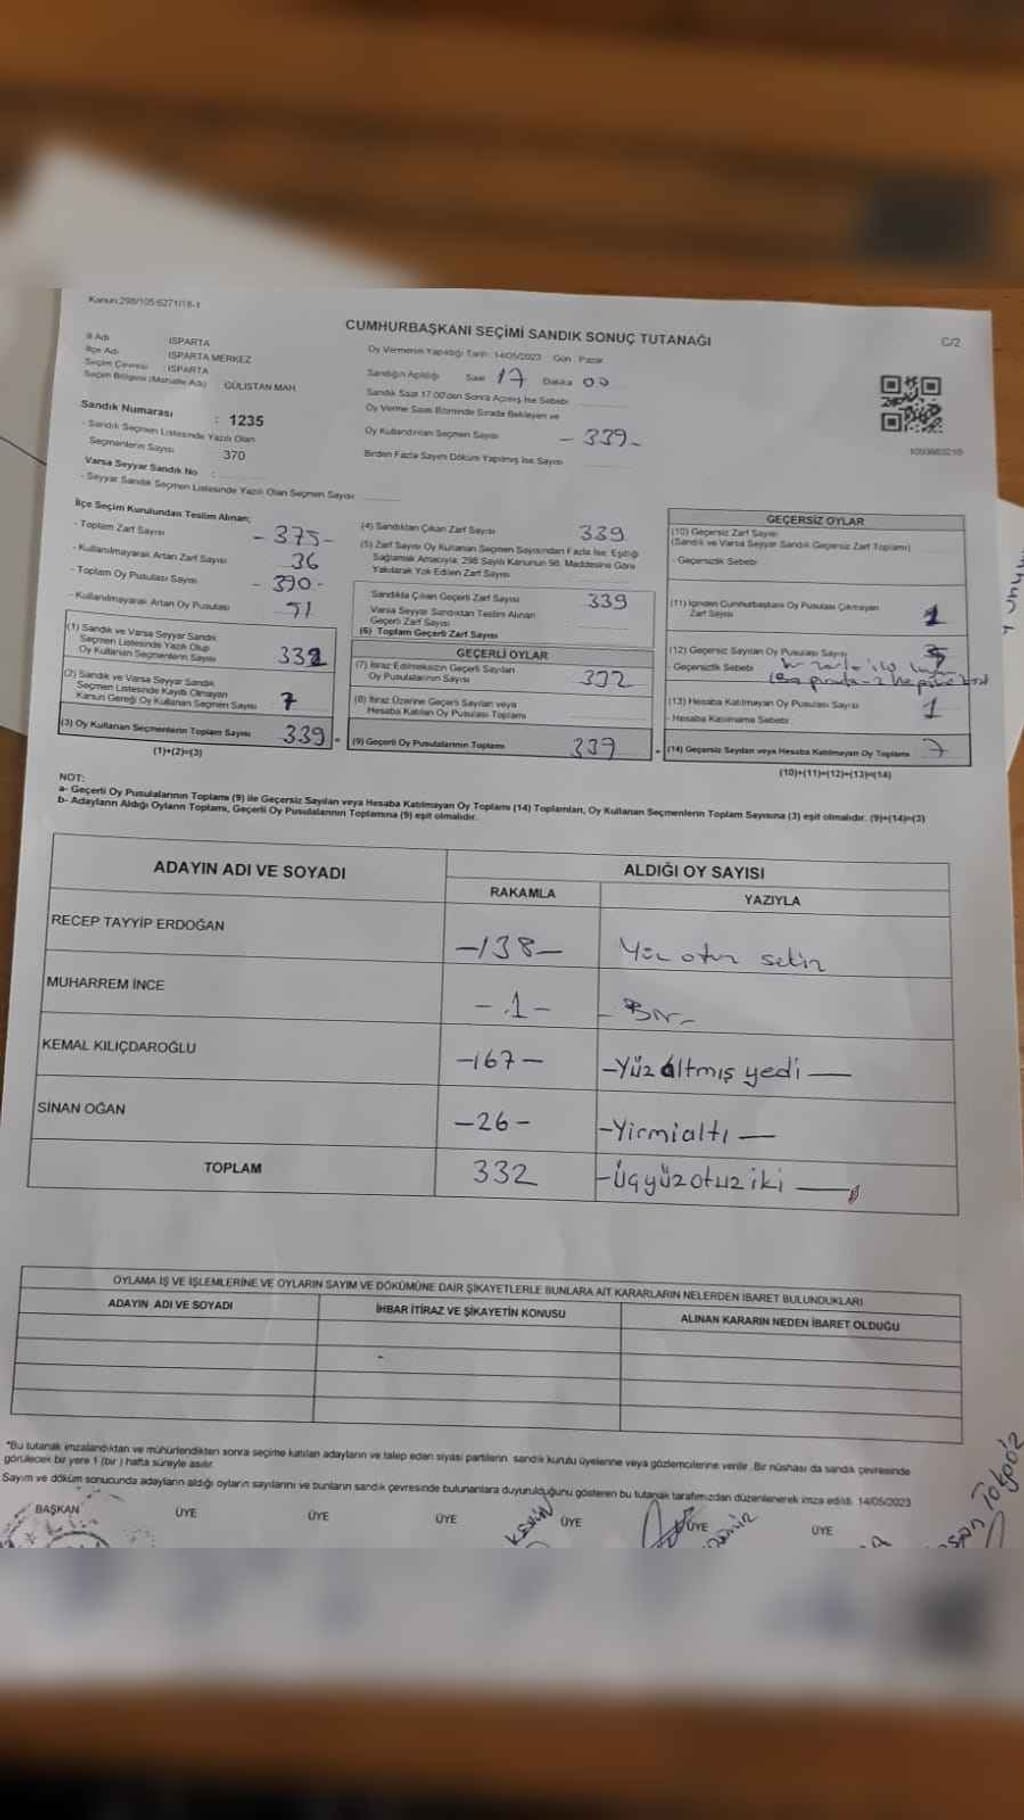 Kanun:298/105-6271/18-1
CUMHURBAŞKANI SEÇİMİ SANDIK SONUÇ TUTANAĞI
C/2
İl Adı : ISPARTA
İlçe Adı : ISPARTA MERKEZ
Seçim Çevresi : ISPARTA
Seçim Bölgesi (Mahalle Adı) : GÜLİSTAN MAH.
Sandık Numarası : 1235
- Sandık Seçmen Listesinde Yazılı Olan
Seçmenlerin Sayısı 370
Varsa Seyyar Sandık No :
- Seyyar Sandık Seçmen Listesinde Yazılı Olan Seçmen Sayısı
Oy Vermenin Yapıldığı Tarih: 14/05/2023 Gün : Pazar
Sandığın Açıldığı Saat 17 Dakika 00
Sandık Saat 17.00'den Sonra Açılmış İse Sebebi
Oy Verme Saati Bitiminde Sırada Bekleyen ve
Oy Kullandırılan Seçmen Sayısı - 339 -
Birden Fazla Sayım Döküm Yapılmış İse Sayısı
İlçe Seçim Kurulundan Teslim Alınan;
- Toplam Zarf Sayısı - 375 -
- Kullanılmayarak Artan Zarf Sayısı 36
- Toplam Oy Pusulası Sayısı - 390 -
- Kullanılmayarak Artan Oy Pusulası
(1) Sandık ve Varsa Seyyar Sandık
Seçmen Listesinde Yazılı Olup
Oy Kullanan Seçmenlerin Sayısı 332
(2) Sandık ve Varsa Seyyar Sandık
Seçmen Listesinde Kayıtlı Olmayan
Kanun Gereği Oy Kullanan Seçmen Sayısı 7
(3) Oy Kullanan Seçmenlerin Toplam Sayısı 339
(1)+(2)=(3)
(4) Sandıktan Çıkan Zarf Sayısı 339
(5) Zarf Sayısı Oy Kullanan Seçmen Sayısından Fazla İse; Eşitliği
Sağlamak Amacıyla, 298 Sayılı Kanunun 98. Maddesine Göre
Yakılarak Yok Edilen Zarf Sayısı
Sandıkta Çıkan Geçerli Zarf Sayısı 339
Varsa Seyyar Sandıktan Teslim Alınan
Geçerli Zarf Sayısı
(6) Toplam Geçerli Zarf Sayısı
GEÇERLİ OYLAR
(7) İtiraz Edilmeksizin Geçerli Sayılan
Oy Pusulalarının Sayısı 332
(8) İtiraz Üzerine Geçerli Sayılan veya
Hesaba Katılan Oy Pusulası Toplamı
(9) Geçerli Oy Pusulalarının Toplamı
GEÇERSİZ OYLAR
(10) Geçersiz Zarf Sayısı
(Sandık ve Varsa Seyyar Sandık Geçersiz Zarf Toplamı)
- Geçersizlik Sebebi
(11) İçinden Cumhurbaşkanı Oy Pusulası Çıkmayan
Zarf Sayısı 1
(12) Geçersiz Sayılan Oy Pusulası Sayısı 5
Geçersizlik Sebebi
(13) Hesaba Katılmayan Oy Pusulası Sayısı 1
- Hesaba Katılmama Sebebi
(14) Geçersiz Sayılan veya Hesaba Katılmayan Oy Toplamı 7
(10)+(11)+(12)+(13)=(14)
NOT:
a- Geçerli Oy Pusulalarının Toplamı (9) ile Geçersiz Sayılan veya Hesaba Katılmayan Oy Toplamı (14) Toplamları, Oy Kullanan Seçmenlerin Toplam Sayısına (3) eşit olmalıdır. (9)+(14)=(3)
b- Adayların Aldığı Oyların Toplamı, Geçerli Oy Pusulalarının Toplamına (9) eşit olmalıdır.
ADAYIN ADI VE SOYADI
ALDIĞI OY SAYISI
RAKAMLA YAZIYLA
RECEP TAYYİP ERDOĞAN -138- Yüz otuz sekiz
MUHARREM İNCE -1- - Bir -
KEMAL KILIÇDAROĞLU -167- -Yüz altmış yedi-
SİNAN OĞAN -26- -Yirmialtı-
TOPLAM 332 -Üçyüzotuziki-
OYLAMA İŞ VE İŞLEMLERİNE VE OYLARIN SAYIM VE DÖKÜMÜNE DAİR ŞİKAYETLERLE BUNLARA AİT KARARLARIN NELERDEN İBARET BULUNDUKLARI
ADAYIN ADI VE SOYADI İHBAR İTİRAZ VE ŞİKAYETİN KONUSU ALINAN KARARIN NEDEN İBARET OLDUĞU
*Bu tutanak imzalandıktan ve mühürlendikten sonra seçime katılan adayların ve talep eden siyasi partilerin, sandık kurulu üyelerine veya gözlemcilerine verilir. Bir nüshası da sandık çevresinde
görülecek bir yere 1 (bir) hafta süreyle asılır.
Sayım ve döküm sonucunda adayların aldığı oyların sayılarını ve bunların sandık çevresinde bulunanlara duyurulduğunu gösteren bu tutanak tarafımızdan düzenlenerek imza edildi. 14/05/2023
BAŞKAN ÜYE ÜYE ÜYE ÜYE ÜYE ÜYE